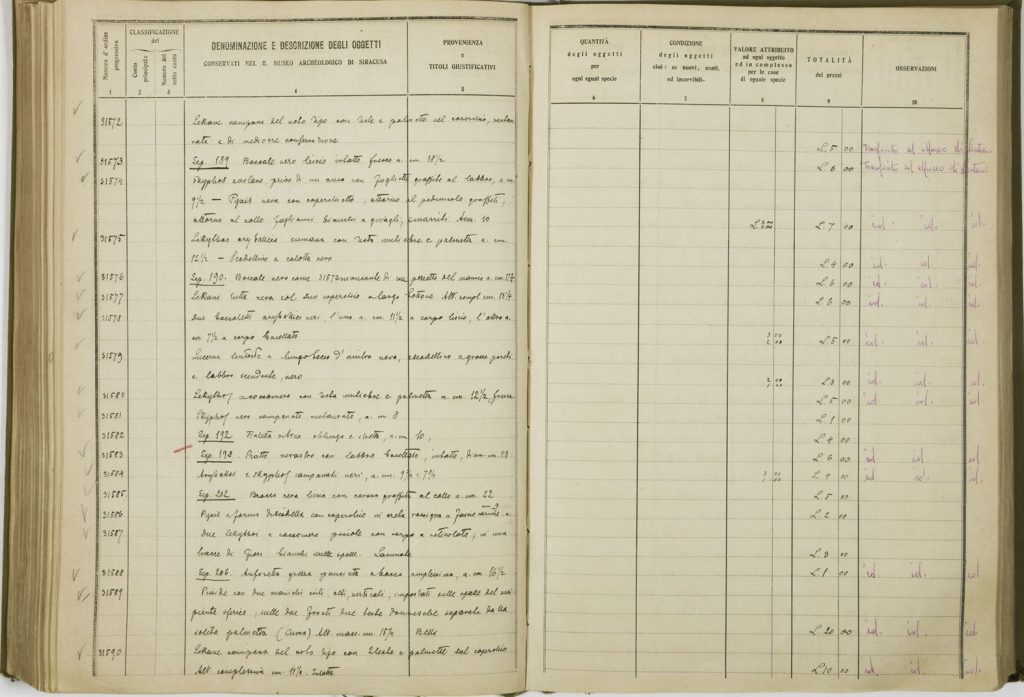 Numero d'ordine progressivo
CLASSIFICAZIONE
del
Conto principale
Numero del sotto conto
DENOMINAZIONE E DESCRIZIONE DEGLI OGGETTI
CONSERVATI NEL R. MUSEO ARCHEOLOGICO DI SIRACUSA
PROVENIENZA
e
TITOLI GIUSTIFICATIVI
1 2 3 4 5
31572 Lekane campana del solito tipo con teste e palmette nel coperchio,
nata e di mediocre conservazione
31573 Sep. 189 Boccale nero liscio intatto fresco a. cm. 18½
31574 Skyphos privo di un' ansa con foglietta graffita al labbro, a. cm.
9½ — Pyxis nera con coperchietto; attorno al peduncolo graffiti,
attorno al collo fogliami bianchi smarriti. Am. 10
31575 Lekythos aryballica cumana con testa muliebre e palmetta a. cm.
12½ — Scodellino a calotta nero
31576 Sep. 190. Boccale nero come 31573 mancante di un pezzetto del manico a. cm.
31577 Lekane tutta nera col suo coperchio a largo bottone. Alt. compl. cm.
31578 Due boccaletti aryballici neri, l'uno a. cm. 11½ a corpo liscio, l'altro a.
cm. 7½ a corpo baccellato
31579 Lucerna a lungo becco d'ambra nera, scodellino a grosse pareti
e labbro nero
31580 Lekythos con testa muliebre e palmetta a. cm. 12½, fresca
31581 Skyphos nero campanato restaurato, a. cm. 8
31582 Sep. 192 Fialetta oblunga e a. cm. 10,
31583 Sep. 198. Piatto nerastro con labbro baccellato, intatto, diam. cm. 21
31584 Aryballos e skyphos campanati neri, a. cm. 9½ e 7½
31585 Sep. 202 Brocca nera liscia con corona graffita al collo a. cm. 22
31586 Pyxis a forma di scodella con coperchio in creta rossigna a fascie a.
31587 Due lekythos a piccole con corpo a reticolato; in una
tracce di fiori bianchi sulle spalle. Lacunose
31588 Sep. 206. Anforetta panciuta a bocca amplissima, a. cm. 16½
31589 Pisside con due manichi esili alti, verticali, impostati sulle spalle del reci-
piente sferico; sulle due fronti due teste donnesche separate dalla
solita palmetta (Cuma) Alt. mass. cm. 15½ Bella
31590 Lekane campana del solito tipo con 2 teste e palmette sul coperchio
Alt. complessiva cm. 11½. Intatta
QUANTITÀ
degli oggetti
per
ogni egual specie
CONDIZIONE
degli oggetti
cioè: se nuovi, usati,
od inservibili-
VALORE ATTRIBUITO
ad ogni oggetto
ed in complesso
per le cose
di eguale specie
TOTALITÀ
dei prezzi
OSSERVAZIONI
6 7 8 9 10
L. 5 00 Trasferito al Museo di
L. 6 00 Trasferito al Museo di
L. 7 00 id. id. id.
L. 4 00 id. id. id.
L. 6 00 id. id. id.
L. 6 00 id. id. id.
3 00
2 00 L. 5 00 id. id. id.
2 00
1 00 L. 3 00 id. id. id.
L. 5 00 id. id. id.
L. 1 00
L. 4 00
L. 6 00 id. id. id.
3 00
1 00 L. 4 00 id. id. id.
L. 5 00
L. 2 00
L. 3 00
L. 1 00 id. id. id.
L. 20 00 id. id. id.
L. 10 00 id. id. id.